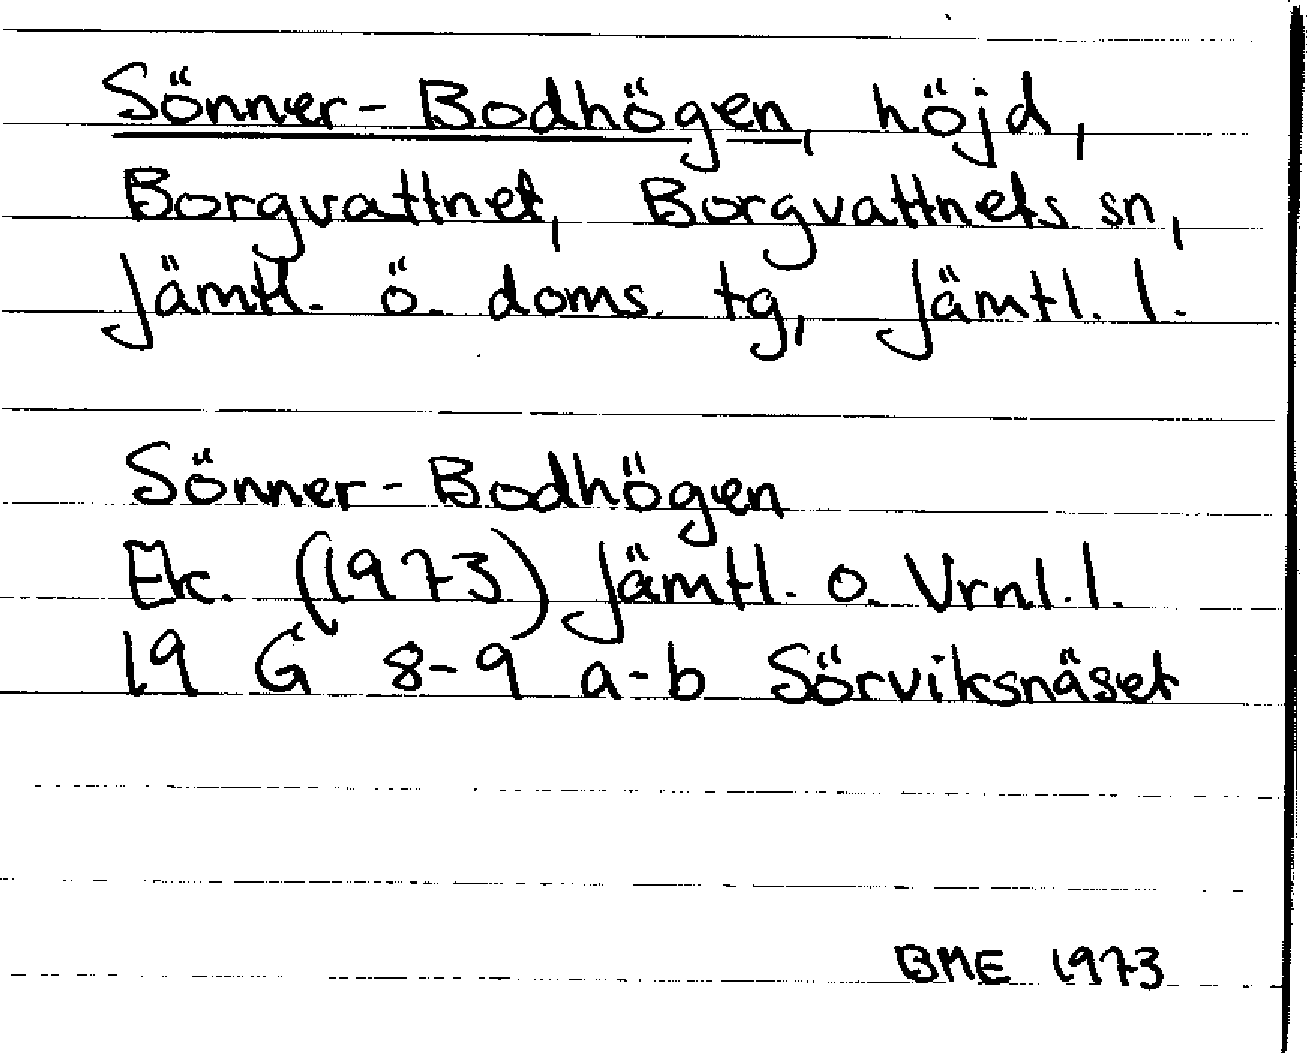 Sönner-Bodhögen, höjd,
Borgvattnet, Borgvattnets sn,
Jämtl. ö. doms. tg, Jämtl. l.
Sönner-Bodhögen
Ek. (1973) Jämtl. o. Vrnl. l.
19 G 8-9 a-b Sörviksnäset
BME 1973